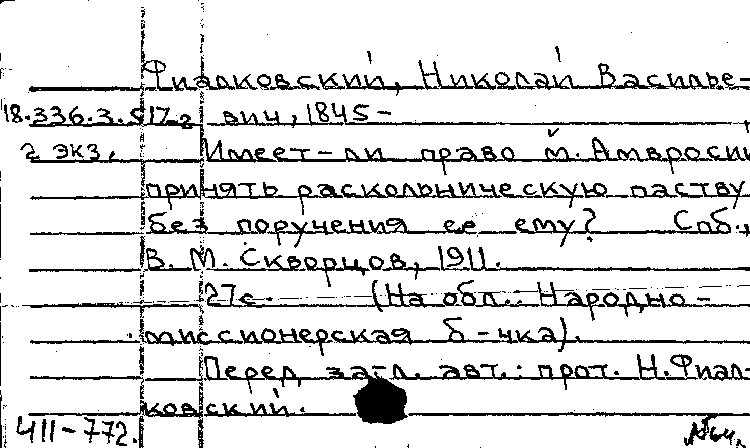 Фиалковский, Николай Василье-
18.336.3.517г вич, 1845-
2 экз. Имеет-ли право м. Амвросий
принять раскольническую паству
без поручения ее ему? Спб.,
В. М. Скворцов, 1911.
27с. (На обл.: Народно-
миссионерская б-чка).
Перед загл. авт.: прот. Н. Фиал-
ковский.
411-772.